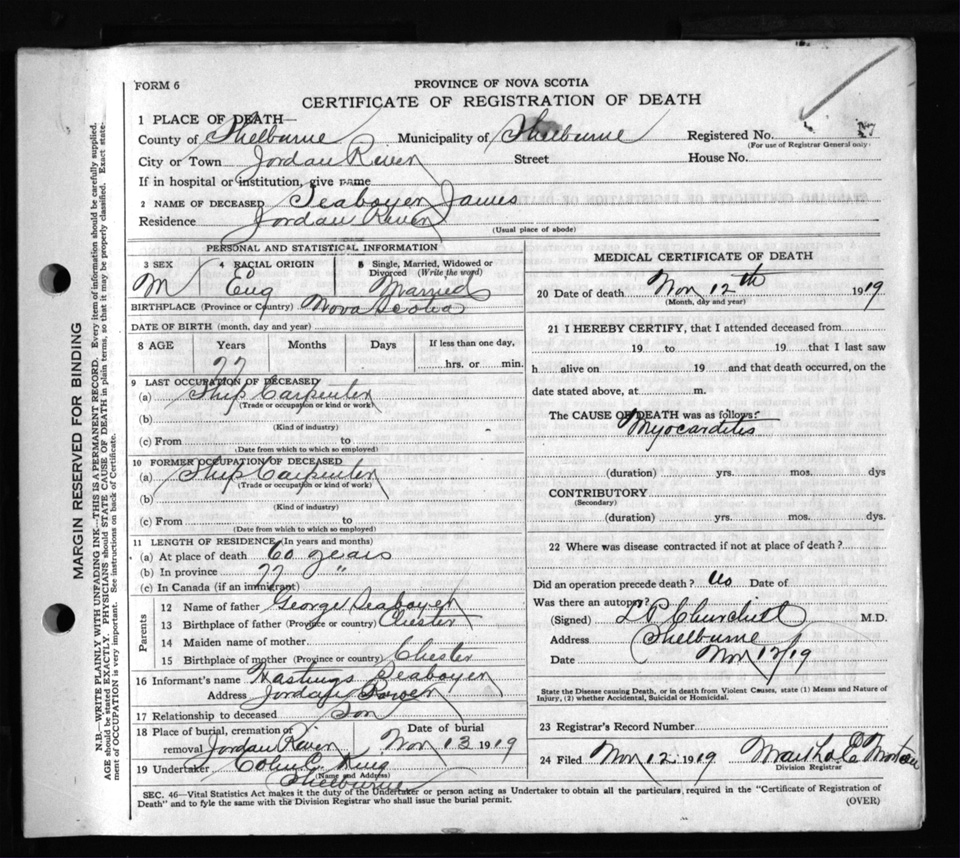 FORM 6
PROVINCE OF NOVA SCOTIA
CERTIFICATE OF REGISTRATION OF DEATH
1 PLACE OF DEATH—
County of Shelburne Municipality of Shelburne Registered No.
(For use of Registrar General only)
City or Town Jordan River Street House No.
If in hospital or institution, give name
2 NAME OF DECEASED Seaboyer James
Residence Jordan River
(Usual place of abode)
PERSONAL AND STATISTICAL INFORMATION
3 SEX 4 RACIAL ORIGIN 5 Single, Married, Widowed or Divorced (Write the word)
M Eng Married
BIRTHPLACE (Province or Country) Nova Scotia
DATE OF BIRTH (month, day and year)
8 AGE Years Months Days If less than one day,
77 hrs. or min.
9 LAST OCCUPATION OF DECEASED
(a) Ship Carpenter
(Trade or occupation or kind of work)
(b)
(Kind of industry)
(c) From to
(Date from which to which so employed)
10 FORMER OCCUPATION OF DECEASED
(a) Ship Carpenter
(Trade or occupation or kind of work)
(b)
(Kind of industry)
(c) From to
(Date from which to which so employed)
11 LENGTH OF RESIDENCE (In years and months)
(a) At place of death 60 years
(b) In province 77 "
(c) In Canada (if an immigrant)
Parents
12 Name of father George Seaboyer
13 Birthplace of father (Province or country) Chester
14 Maiden name of mother
15 Birthplace of mother (Province or country) Chester
16 Informant's name Hastings Seaboyer
Address Jordan River
17 Relationship to deceased Son
18 Place of burial, cremation or removal Jordan River Date of burial Nov 13 1919
19 Undertaker Colin C. King
(Name and Address)
Shelburne
MEDICAL CERTIFICATE OF DEATH
20 Date of death Nov 12th 1919
(Month, day and year)
21 I HEREBY CERTIFY, that I attended deceased from
19 to 19 that I last saw
h alive on 19 and that death occurred, on the
date stated above, at m.
The CAUSE OF DEATH was as follows:
Myocarditis
(duration) yrs. mos. dys
CONTRIBUTORY
(Secondary)
(duration) yrs. mos. dys.
22 Where was disease contracted if not at place of death?
Did an operation precede death? No Date of
Was there an autopsy?
(Signed) L P Churchill M.D.
Address Shelburne
Date Nov 12/19
State the Disease causing Death, or in death from Violent Causes, state (1) Means and Nature of
Injury, (2) whether Accidental, Suicidal or Homicidal.
23 Registrar's Record Number
24 Filed Nov 12 1919 Martha E
Division Registrar
SEC. 46—Vital Statistics Act makes it the duty of the Undertaker or person acting as Undertaker to obtain all the particulars required in the "Certificate of Registration of
Death" and to fyle the same with the Division Registrar who shall issue the burial permit.
(OVER)
MARGIN RESERVED FOR BINDING
N.B.—WRITE PLAINLY WITH UNFADING INK—THIS IS A PERMANENT RECORD. Every item of information should be carefully supplied.
AGE should be stated EXACTLY. PHYSICIANS should STATE CAUSE OF DEATH in plain terms, so that it may be properly classified. Exact state-
ment of OCCUPATION is very important. See instructions on back of Certificate.